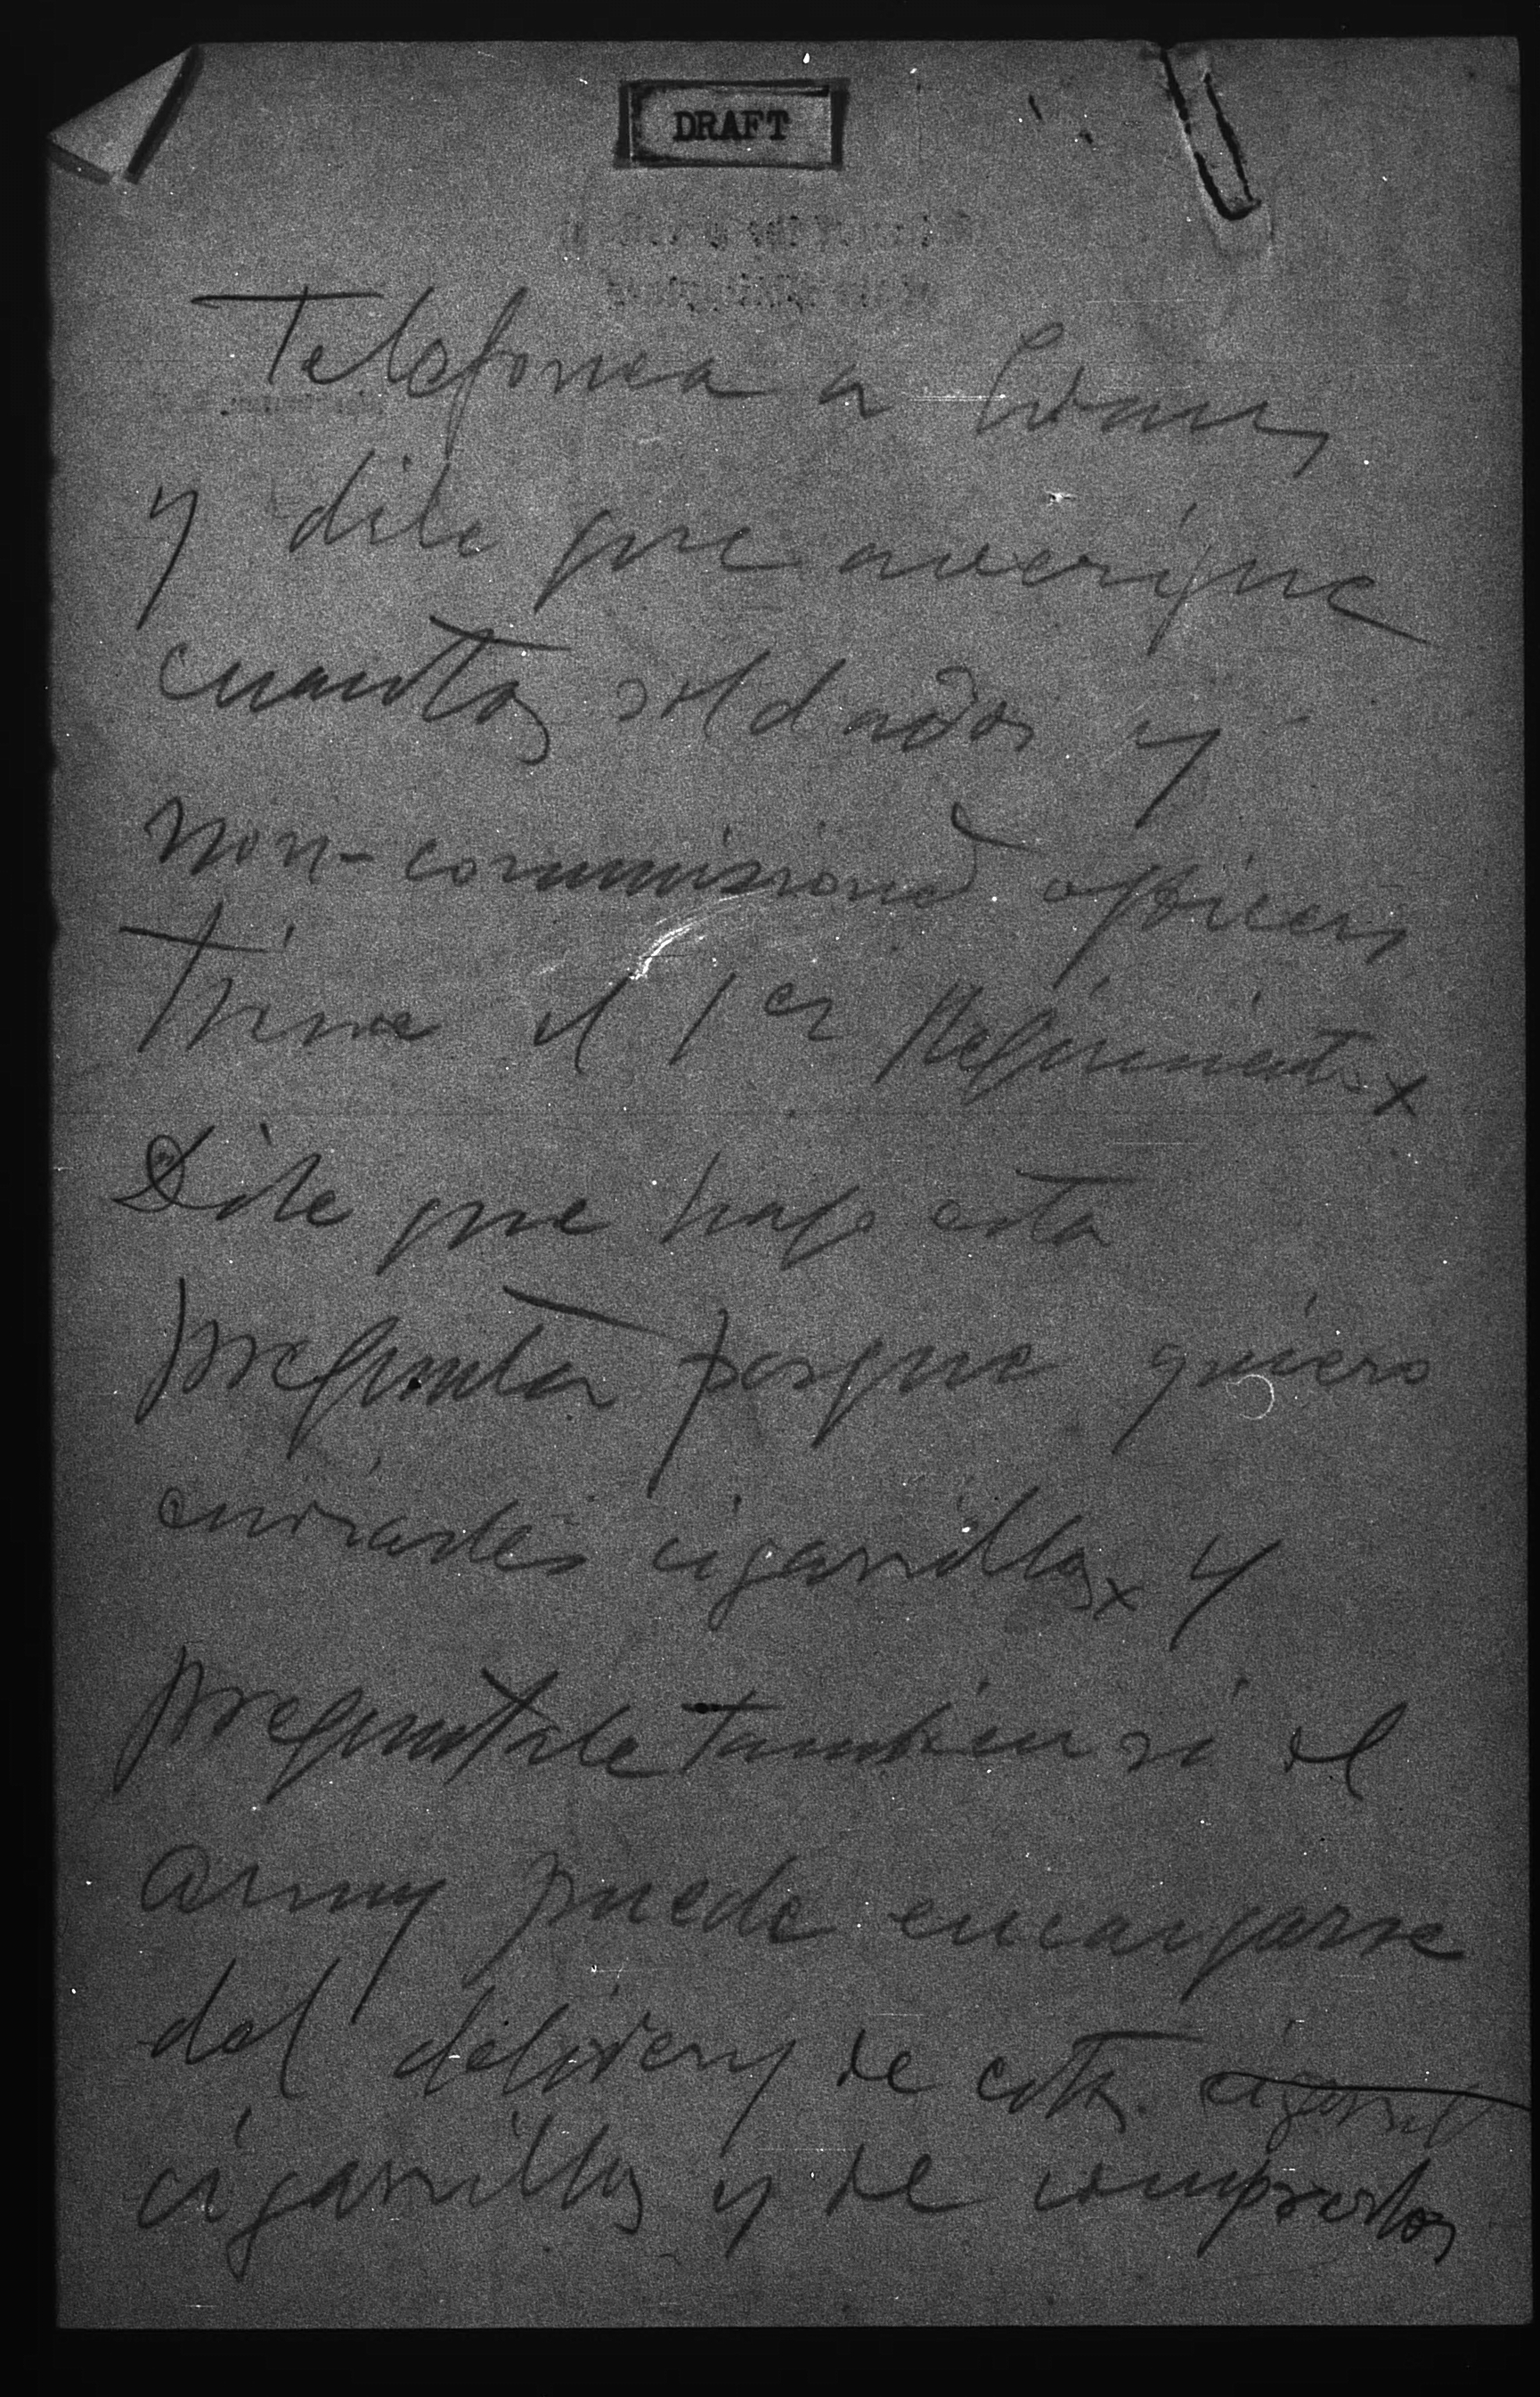 DRAFT
Telefonea a Evans
y dile que averigue
cuantos soldados y
non-commissioned officers
tiene el 1er Regimiento x
Dile que hago esta
pregunta porque quiero
enviarles cigarrillos x Y
preguntale tambien si el
army puede encargarse
del delivery de estos cigarril
cigarrillos y de comprarlos